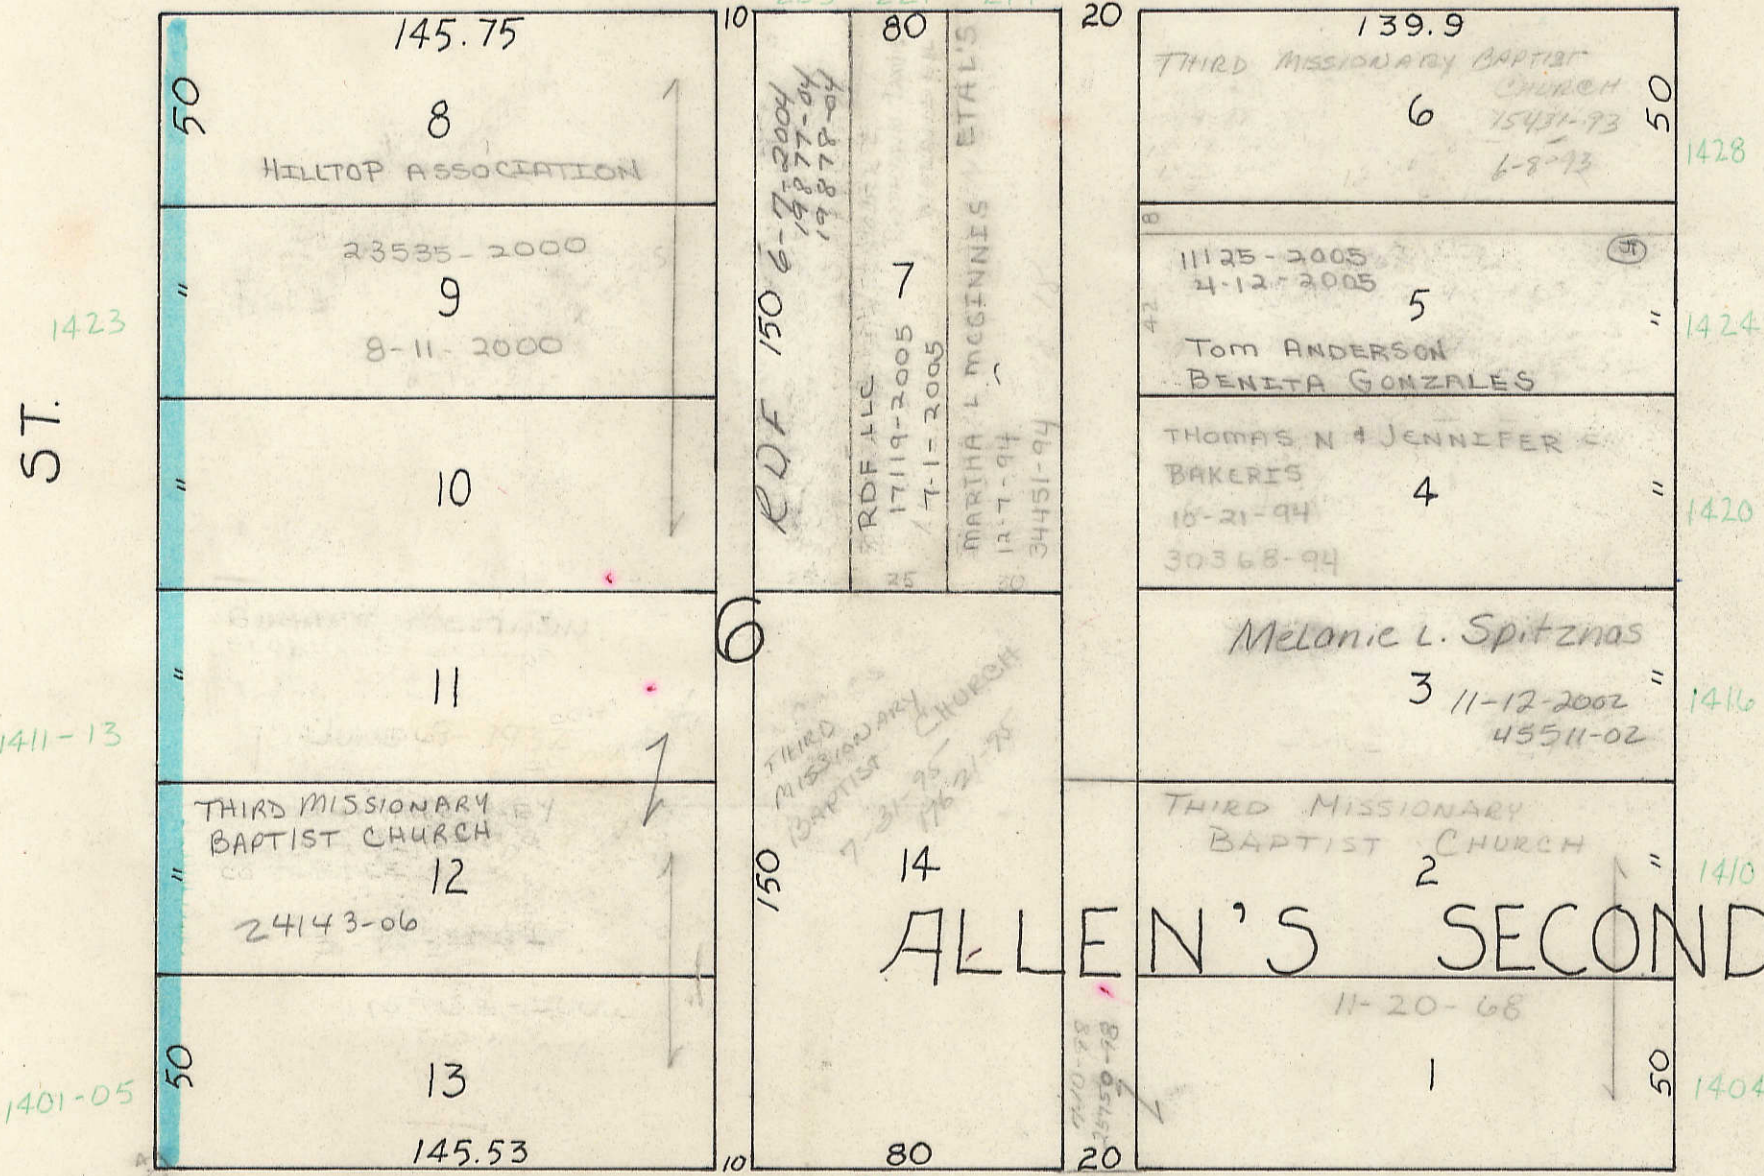 ST.
1423
1411-13
1401-05
145.75
50
8
HILLTOP ASSOCIATION
23535-2000
"
9
8-11-2000
"
10
"
11
THIRD MISSIONARY
BAPTIST CHURCH
"
12
24143-06
50
13
145.53
10
6
10
80
RDF 150 6-7-2004
19877-04
19878-04
7
RDF LLC
17119-2005
7-1-2005
MARTHA L MCGINNIS ETAL'S
12-7-94
34451-94
25
THIRD
MISSIONARY
BAPTIST CHURCH
7-31-95
150
14
80
20
20
ALLEN'S SECOND
139.9
THIRD MISSIONARY BAPTIST
CHURCH
6
15431-93
6-8-93
50
1428
8
11125-2005
4-12-2005
5
42
"
1424
Tom ANDERSON
BENITA GONZALES
THOMAS N & JENNIFER
BAKERIS
4
"
10-21-94
1420
30368-94
Melanie L. Spitznas
3
"
11-12-2002
1416
45511-02
THIRD MISSIONARY
BAPTIST CHURCH
2
"
1410
11-20-68
1
50
1404